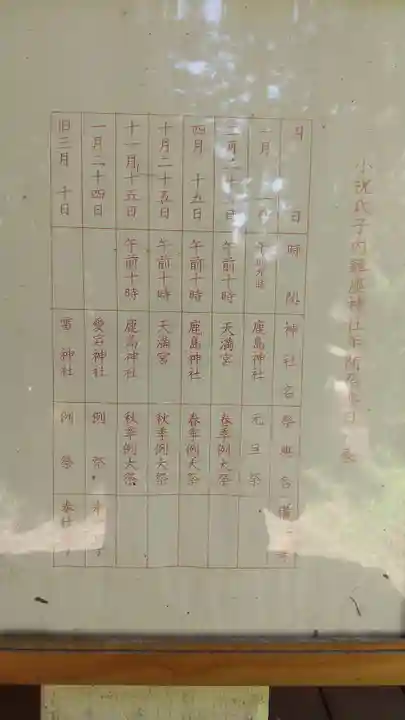 小 氏子内 鹿島神社年間祭 日
月 日 時間 神社名 祭典名 備
一月 一 午前 時 鹿島神社 元旦祭
二月二十 日 午前十時 天満宮 春季例大祭
四月 十五日 午前十時 鹿島神社 春季例大祭
十月二十五日 午前十時 天満宮 秋季例大祭
十一月十五日 午前十時 鹿島神社 秋季例大祭
一月二十四日 愛宕神社 例 祭
旧三月 十日 神社 例 祭